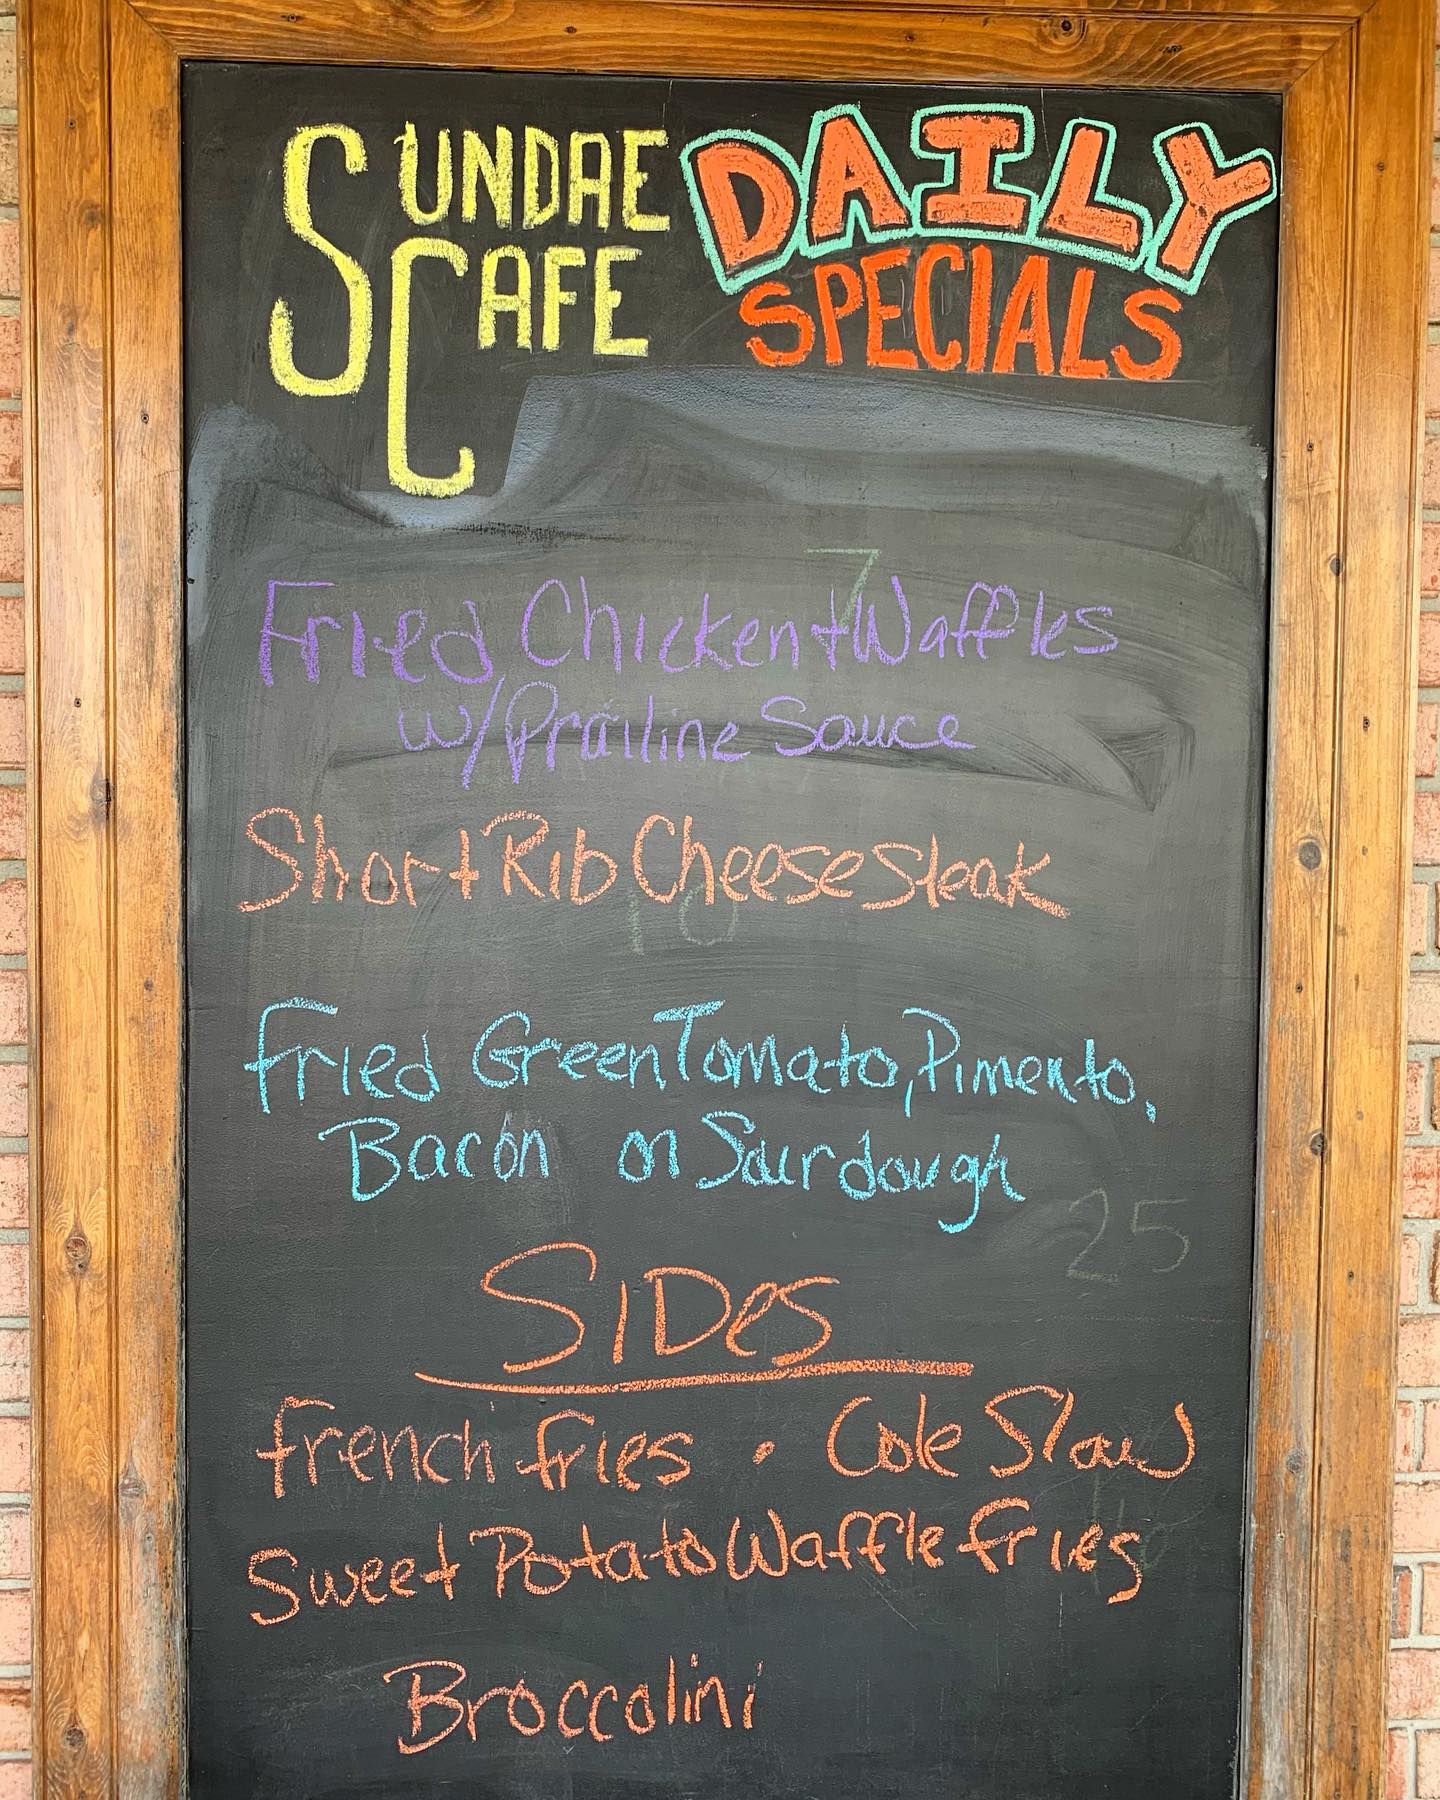 SUNDAE
CAFE
DAILY
SPECIALS
7
Fried Chicken + Waffles
w/ Prailine Sauce
Short Rib Cheese Steak
10
Fried Green Tomato, Pimento,
Bacon on Sourdough
25
SIDes
french fries • Cole Slaw
Sweet Potato Waffle fries
Broccolini